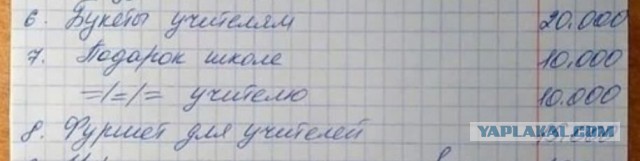 6. Букеты учителям 20.000
7. Подарок школе 10.000
=/=/= учителю 10.000
8. Фуршет для учителей
YAPLAKAL.COM